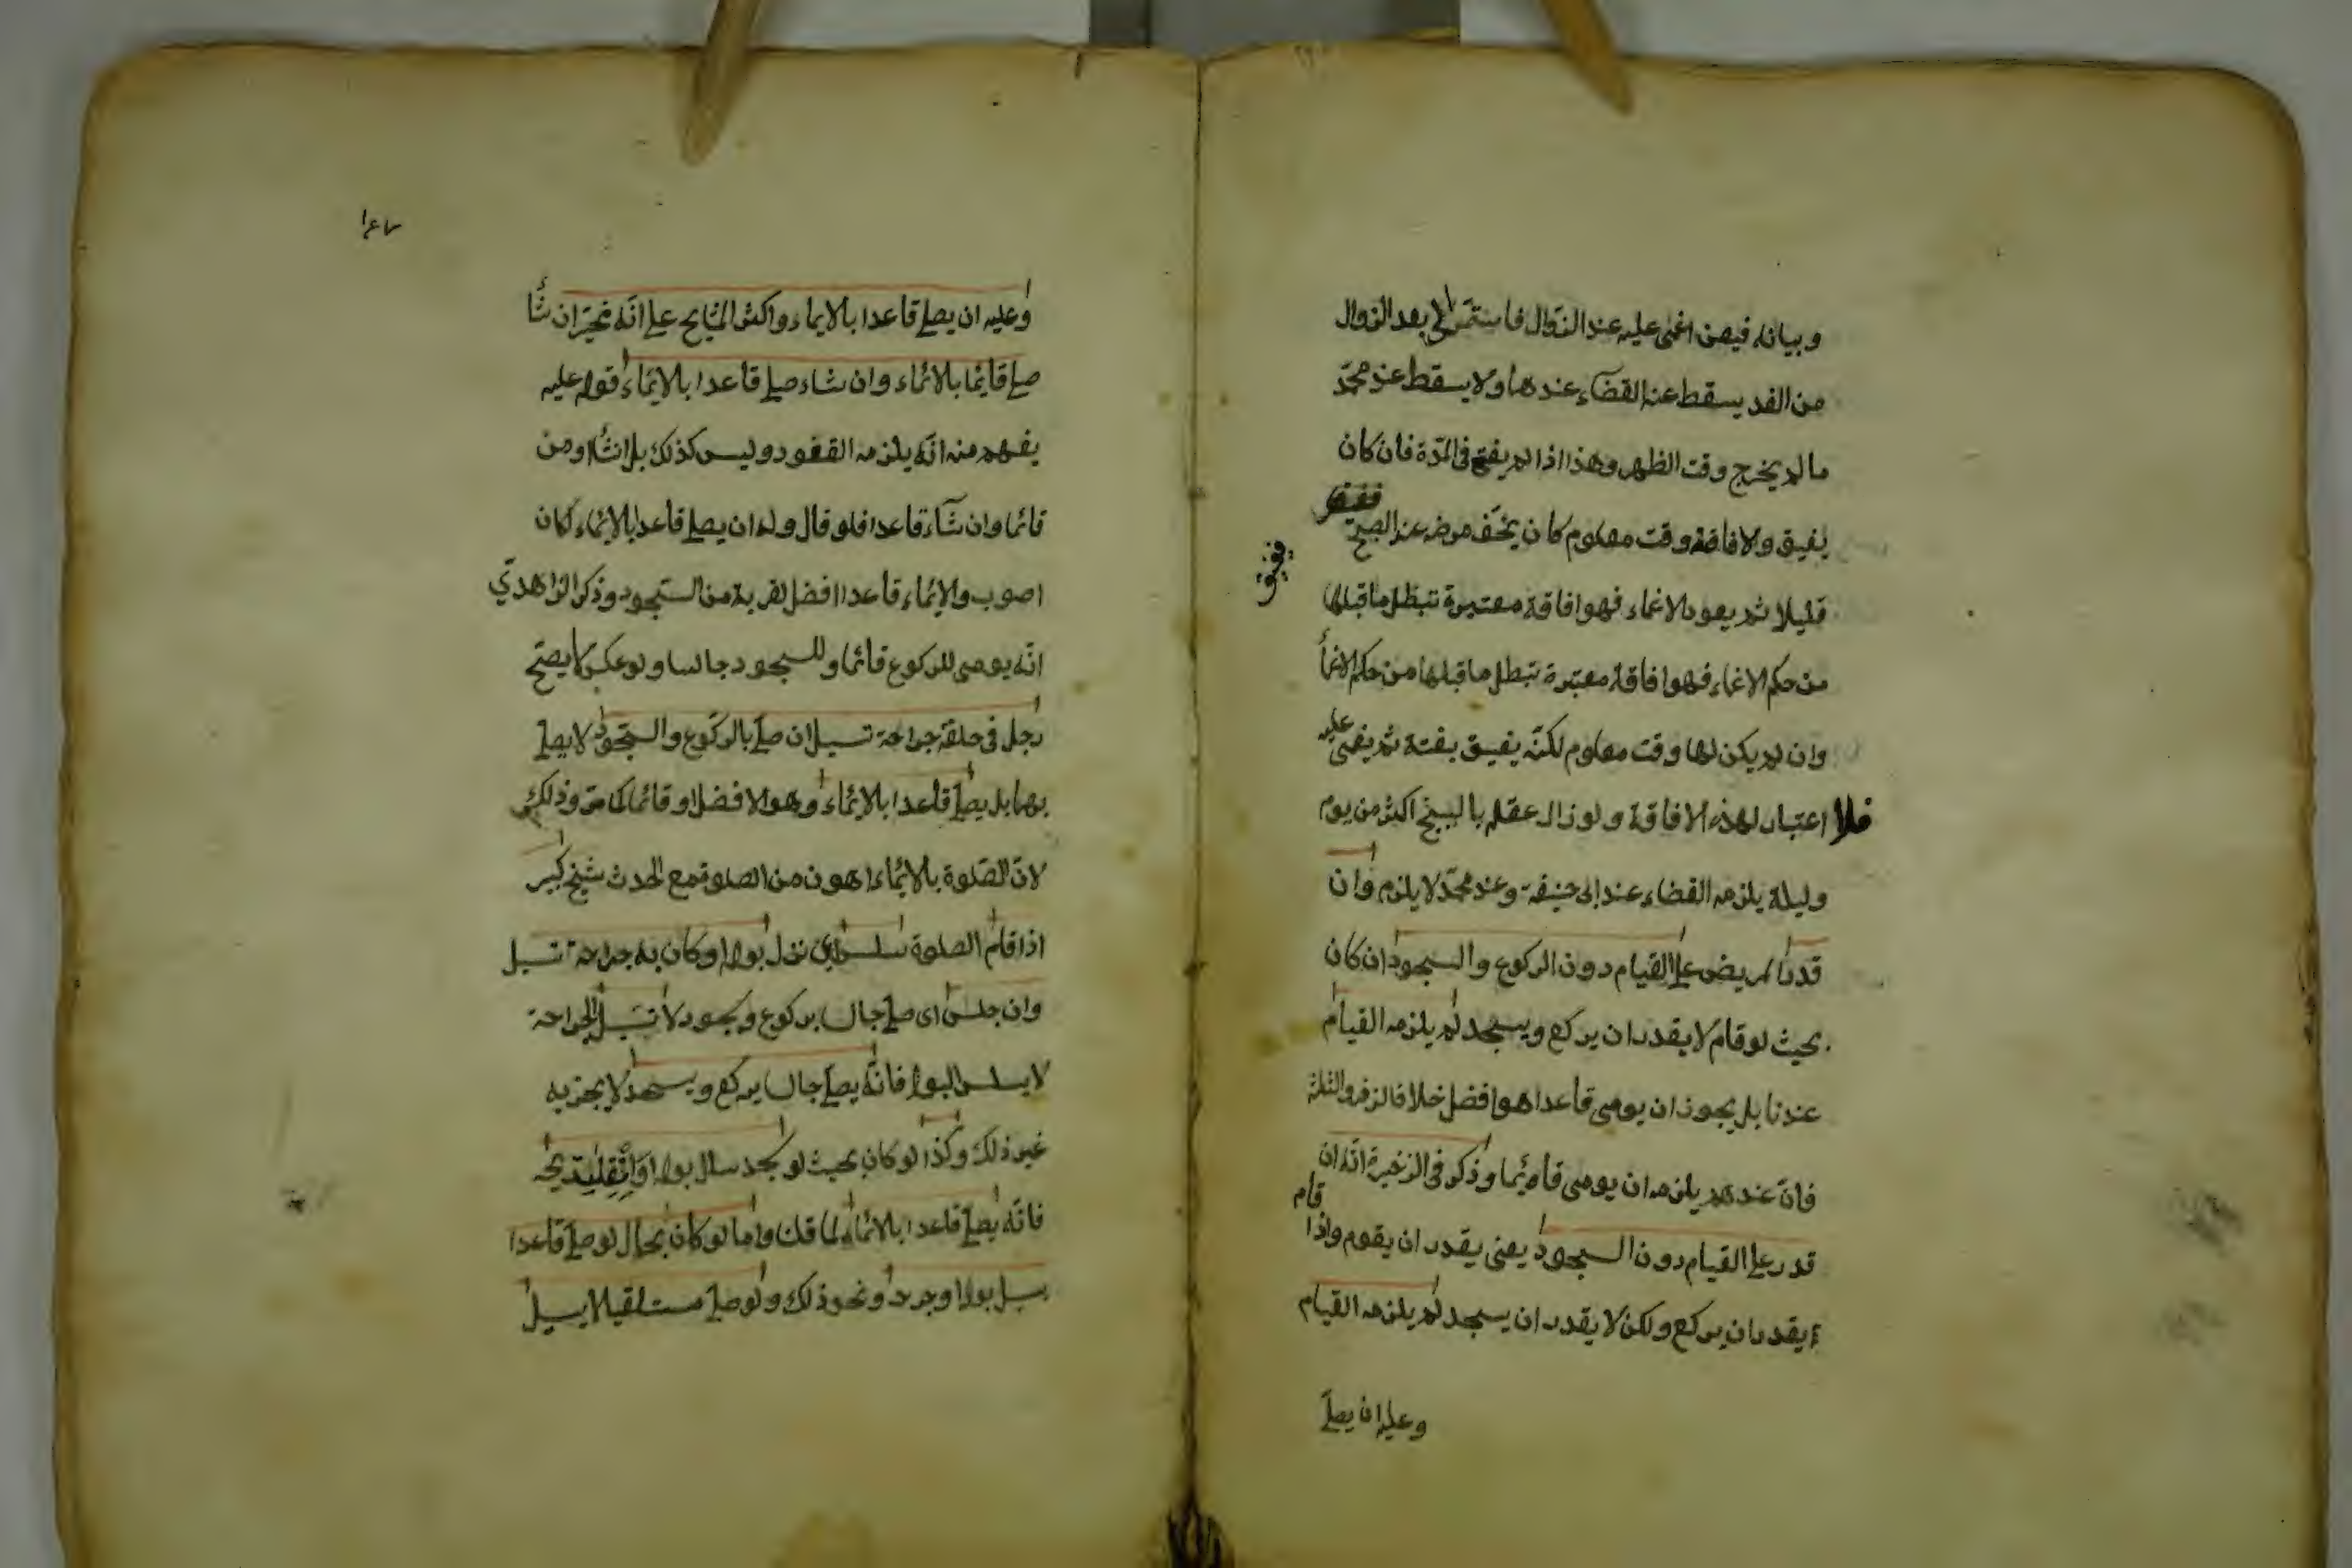 وبيانه فيمن اغمى عليه عند الزوال فاستمر الى بعد الزوال
من الغد يسقط عنه القضاء عندهما ولا يسقط عند محمد
ما لم يخرج وقت الظهر وهذا اذا لم يفق فى المدة فان كان
يفيق ولافاقته وقت معلوم كان يخف مرضه عند الصبح فيفيق
قليلا ثم يعود الاغماء فهو افاقة معتبرة تبطل ما قبلها
من حكم الاغماء فهو افاقة معتبرة تبطل ما قبلها من حكم الاغمأ
وان لم يكن لها وقت معلوم لكنه يفيق بغتة ثم يغمى عليه
فلا اعتبار لهذه الافاقة ولو زال عقله بالبنج اكثر من يوم
وليلة يلزمه القضاء عند ابى حنيفة وعند محمد لا يلزم وان
قدر المريض على القيام دون الركوع والسجود ان كان
بحيث لو قام لا يقدر ان يركع ويسجد لم يلزمه القيام
عندنا بل يجوز ان يومى قاعدا هو افضل خلافا لزفر والثلثة
فان عندهم يلزمه ان يومى قائما وذكر فى الذخيرة انه ان
قدر على القيام دون السجود يعنى يقدر ان يقوم واذا قام
يقدر ان يركع ولكن لا يقدر ان يسجد لم يلزمه القيام
وعليه ان يصلى
وعليه ان يصلى قاعدا بالايماء واكثر المشايخ على انه مخير ان شأ
صلى قائما بالائماء وان شاء صلى قاعدا بالايماء قوله عليه
يفهم منه انه يلزمه القعود وليس كذلك بل ان شأ اومن
قائما وان شآء قاعدا فلو قال وله ان يصلى قاعدا بالايماء لكان
اصوب والايماء قاعدا افضل لقربه من السجود وذكر الزاهدي
انه يومى للركوع قائما وللسجود جالسا ولو عكس لا يصح
رجل فى حلقه جراحة تسيل ان صلى بالركوع والسجود لا يصلى
بهما بل يصلى قاعدا بالايماء وهو الافضل او قائما كما مر وذلك
لان الصلوة بالايماء اهون من الصلوة مع الحدث شيخ كبير
اذا قام الصلوة سلس اى نزل بوله او كان به جراحة تسيل
وان جلس اى صلى جالسا بركوع وسجود لا تسيل الجراحة
لا يسلس البول فانه يصلى جالسا يركع ويسجد لا يجزيه
غير ذلك وكذا لو كان بحيث لو سجد سال بوله او انفلت ريحه
فانه يصلى قاعدا بالائماء لما قلنا واما لو كان بحال لو صلى قاعدا
يسيل بوله او جرحه ونحو ذلك ولو صلى مستلقيا لا يسيل